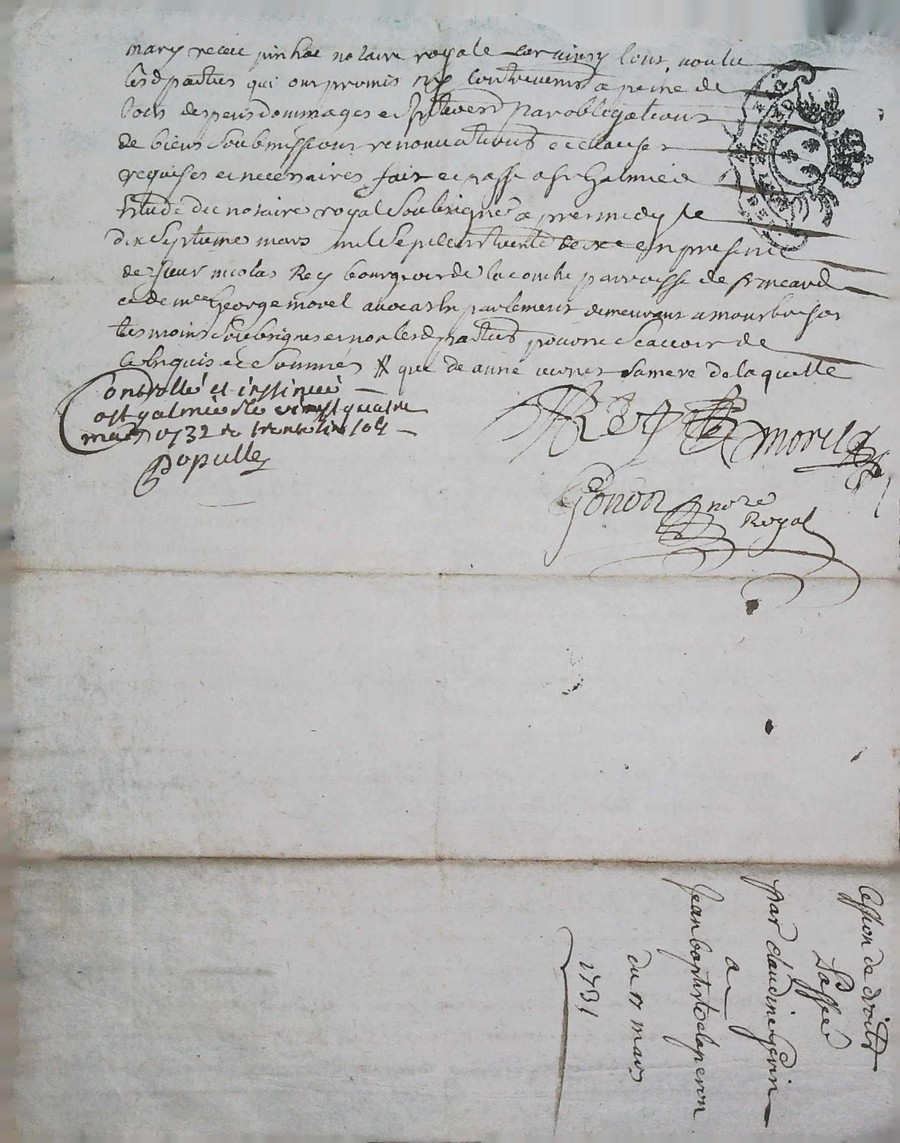 mary receu pin hac notaire royale Car ainsy l'ont voulu
lesd parties qui ont promis ny contrevenir a peine de
tous despens dommages et par obligations
de biens soubmissions renonciations et clauses
requises et necessaires fait et passe a st Galmier
Estude du notaire royal soubsigné apres midy le
dix septieme mars mil sept cent trente deux en presence
de sieur nicolas Rey bourgeois de la couche parroisse de
et de mre George morel avocat en parlement demeurant a montbrison
tesmoins soubsignes et non lesd parties pour ne scavoir de
ce enquis et sommes que de anne sa mere de laquelle
Controllé et insinué
a st galmier le vingt quatre
mars 1732
Populle
Rey morel
Gonon nore
Royal
Cession de droits
Passee
par claudine gevin
a
Jean baptiste laperon
du 17 mars
1731